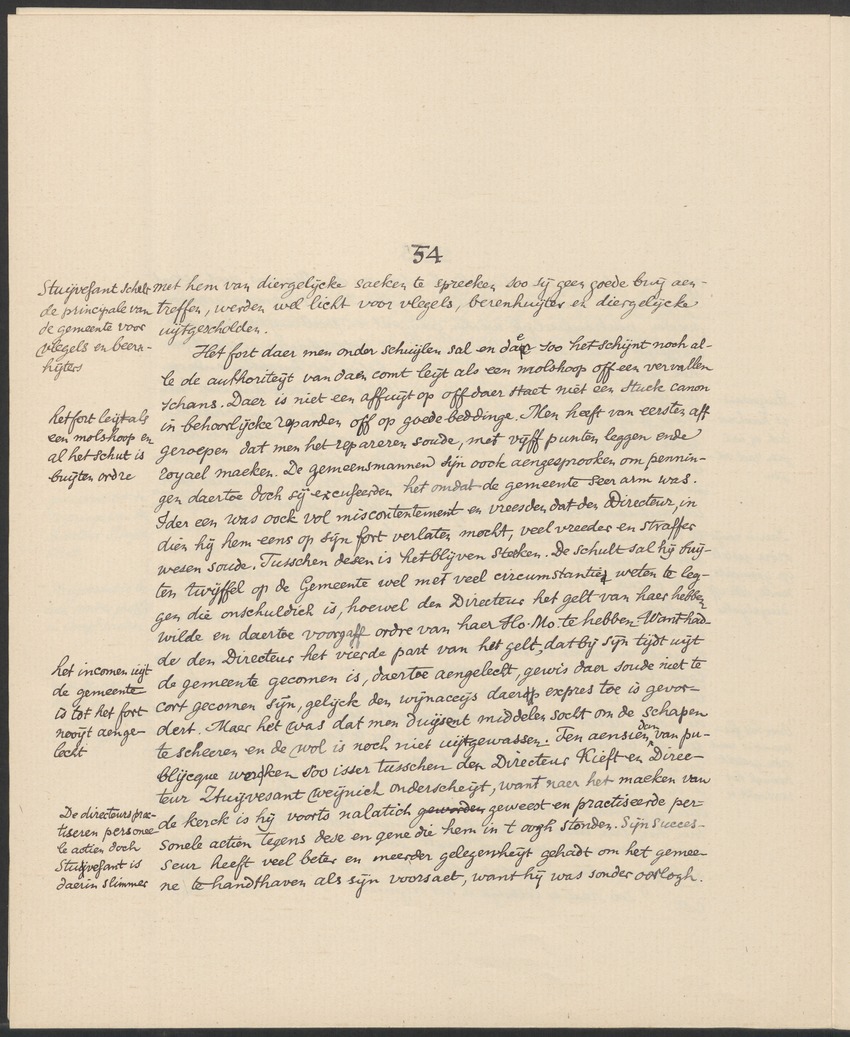 54
Stuijvesant schelt
de principale van
de gemeente voor
vlegels en beern-
hijters
met hem van diergelijcke saeken te spreeken soo sij geen goede buij aen-
treffen, werden wel licht voor vlegels, berenhuijter en diergelijcke
uijtgescholden.
Het fort daer men onder schuijlen sal en daer soo het schijnt noch al-
le de authoriteijt van daen comt leijt als een molshoop off een vervallen
schans. Daer is niet een affuijt op off daer staet niet een stuck canon
het fort leijt als
een molshoop en
al het schut is
buijten ordre
in behoorlijcke reparden off op goede beddinge. Men heeft van eersten aff
geroepen dat men het repareren soude, met vijff punten leggen ende
royael maeken. De gemeensmannen sijn oock aengesprooken om pennin-
gen daertoe doch sij excuseerden het omdat de gemeente seer arm was.
Ider een was oock vol miscontentement en vreesden dat den Directeur, in
dien hij hem eens op sijn fort verlaten mocht, veel vreeder en straffer
wesen soude. Tusschen desen is het blijven steeken. De schult sal hij buij-
ten twijffel op de Gemeente wel met veel circumstantien weten te leg-
gen die onschuldich is, hoewel den Directeur het gelt van haer hebben
wilde en daertoe voorgaff ordre van haer Ho. Mo. te hebben. Want had-
de den Directeur het vierde part van het gelt, dat bij sijn tijdt uijt
het incomen uijt
de gemeente
is tot het fort
nooijt aenge-
lecht
de gemeente gecomen is, daertoe aengelecht, gewis daer soude niet te
cort gecomen sijn, gelijck den wijnaccijs daerop expres toe is gevor-
dert. Maer het was dat men duijsent middelen socht om de schapen
te scheeren en de wol is noch niet uijtgewassen. Ten aensien van pu-
blijcque wercken soo isser tusschen den Directeur Kieft en den Direc-
teur Stuijvesant weijnich onderscheijt, want naer het maeken van
De directeurs prac-
tiseren personee-
le actien doch
Stuijvesant is
daerin slimmer
de kerck is hij voorts nalatich geworden geweest en practiseerde per-
sonele actien tegens dese en gene die hem in t oogh stonden. Sijn succes-
seur heeft veel beter en meerder gelegenheijt gehadt om het gemee-
ne te handthaven als sijn voorsaet, want hij was sonder oorlogh.